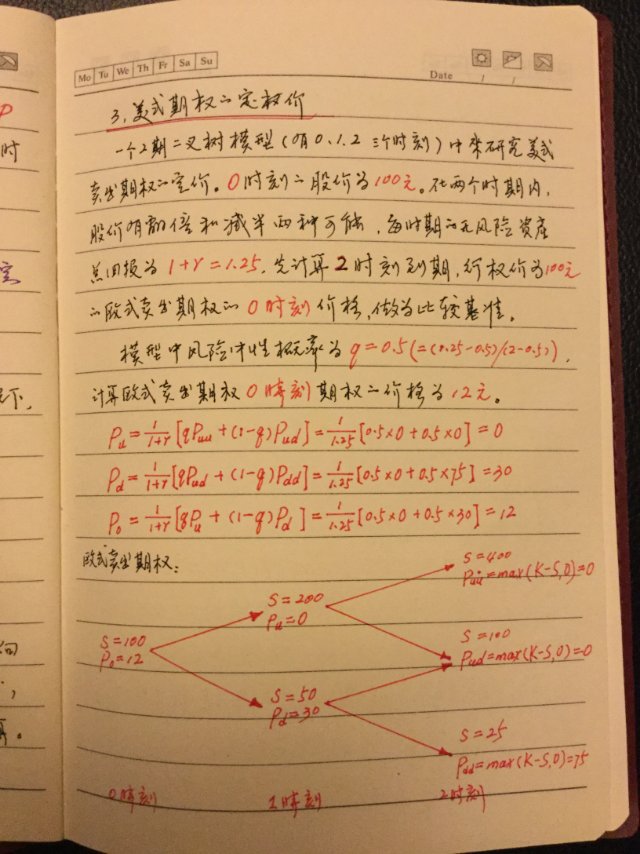 Mo Tu We Th Fr Sa Su
Date / /
3.美式期权的定权价
一个2期二叉树模型(有0.1.2三个时刻)中来研究美式
卖出期权的定价。0时刻的股价为100元。在两个时期内,
股价有翻倍和减半两种可能,每时期的无风险资产
总回报为1+r=1.25.先计算2时刻到期,行权价为100元
的欧式卖出期权的0时刻价格,做为比较基准。
模型中风险中性概率为q=0.5(=(1.25-0.5)/(2-0.5)),
计算欧式卖出期权0时刻期权的价格为12元。
Pu=1/(1+r)[qPuu+(1-q)Pud]=1/1.25[0.5×0+0.5×0]=0
Pd=1/(1+r)[qPud+(1-q)Pdd]=1/1.25[0.5×0+0.5×75]=30
P0=1/(1+r)[qPu+(1-q)Pd]=1/1.25[0.5×0+0.5×30]=12
欧式卖出期权:
S=400
Puu=max(K-S,0)=0
S=200
Pu=0
S=100
P0=12
S=100
Pud=max(K-S,0)=0
S=50
Pd=30
S=25
Pdd=max(K-S,0)=75
0时刻 1时刻 2时刻